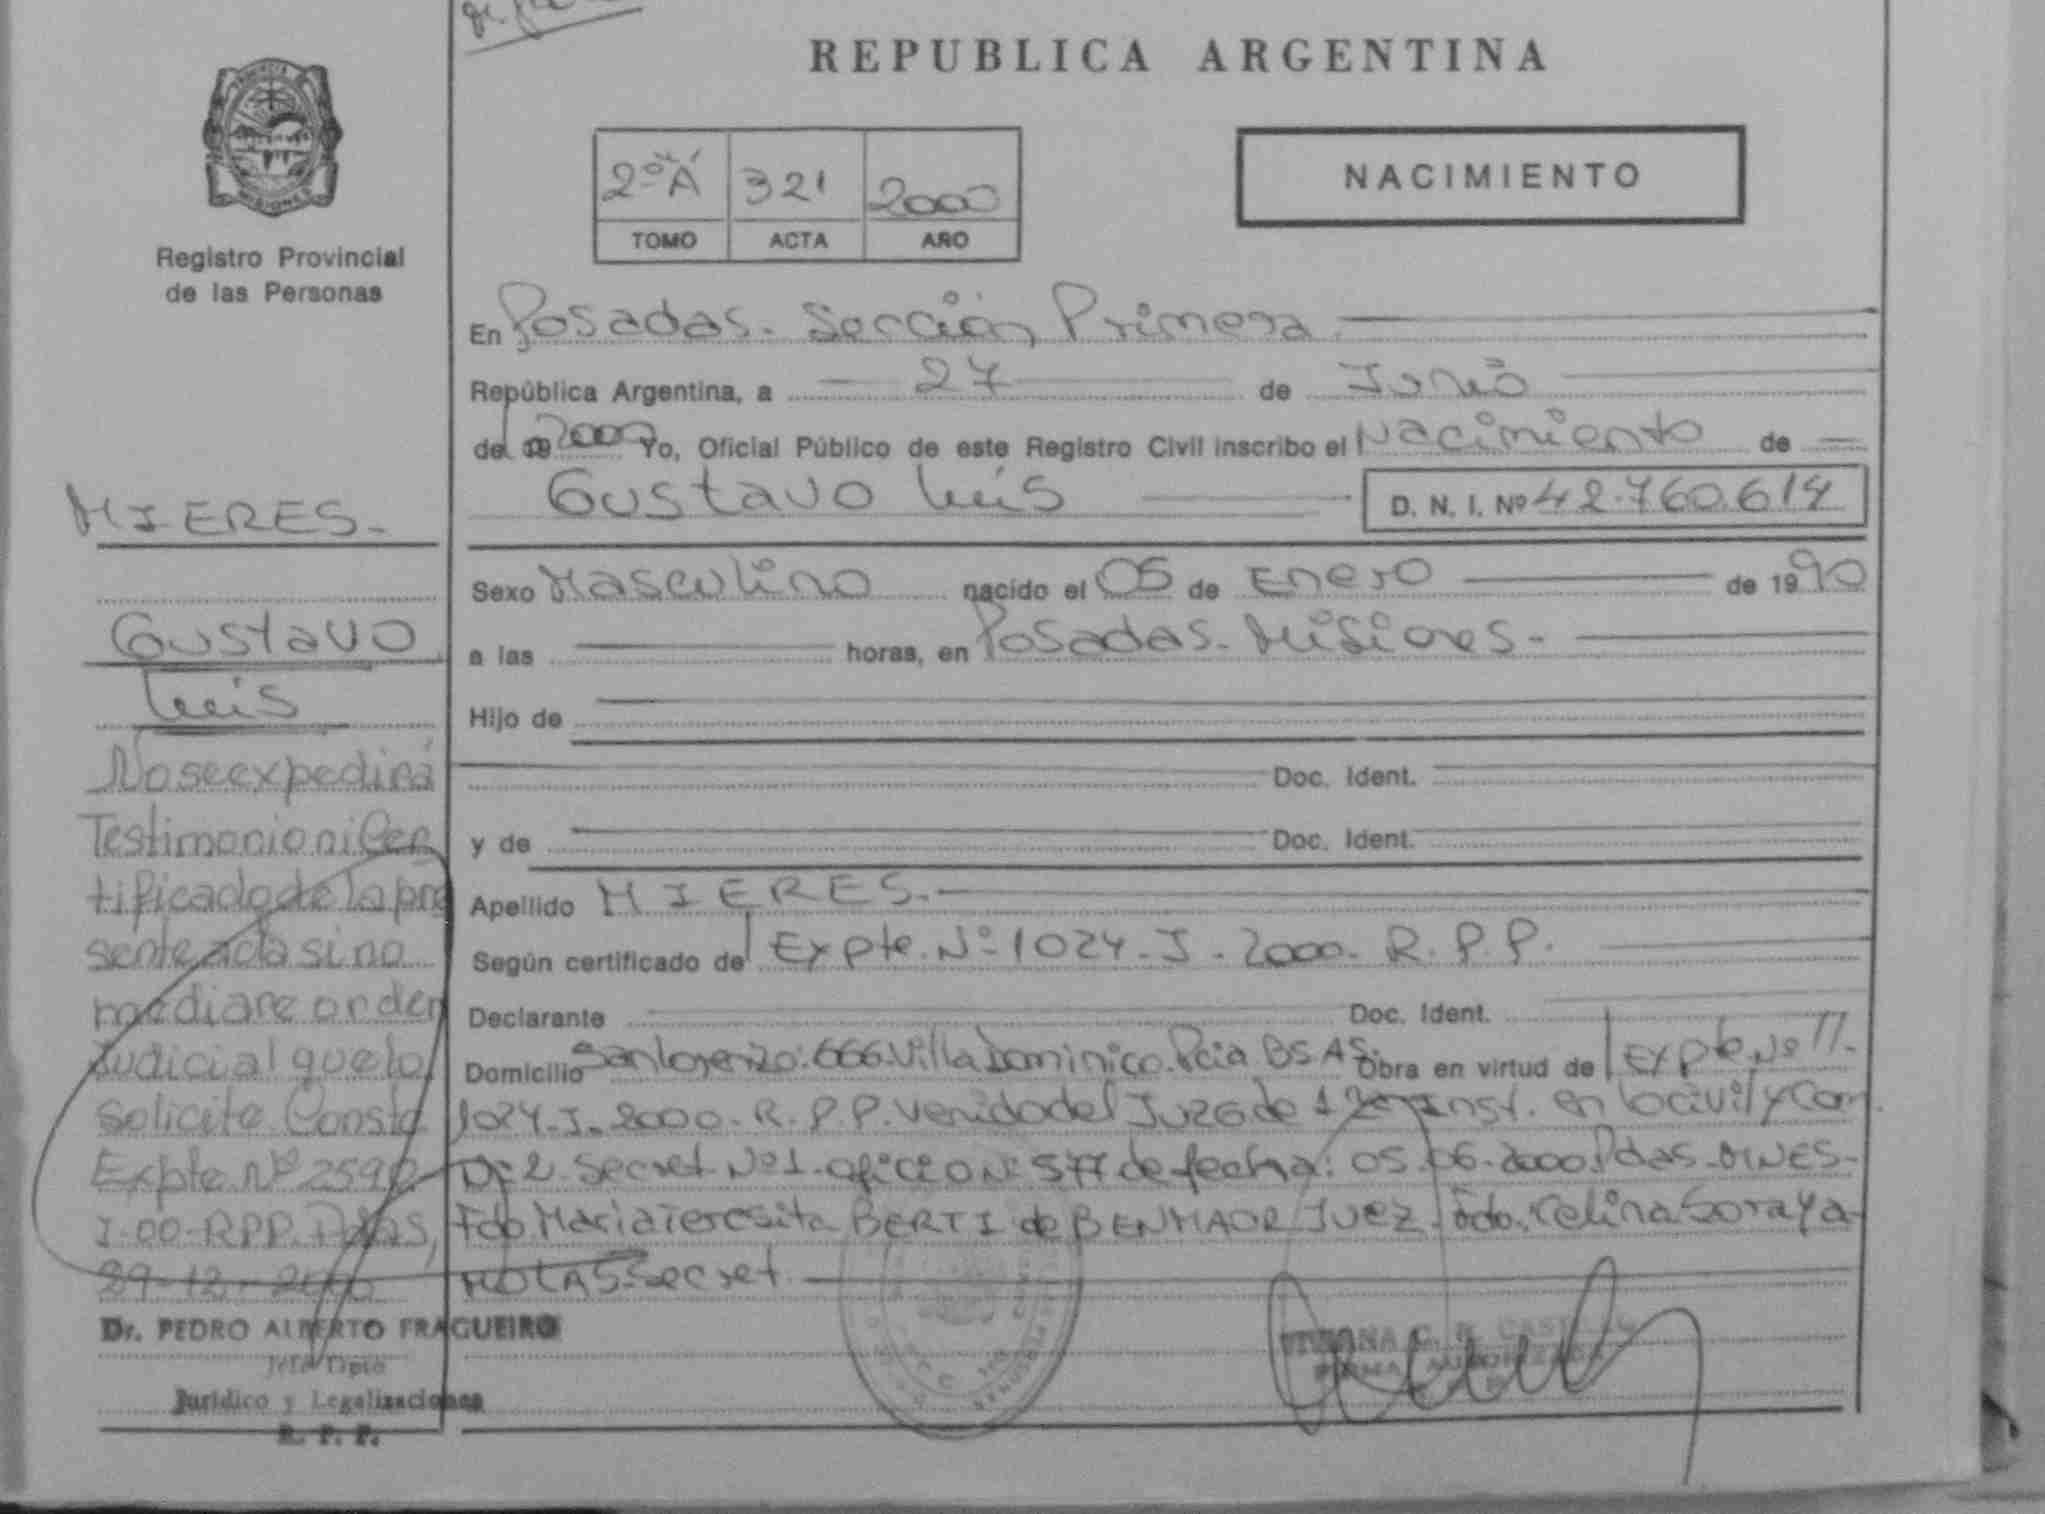 REPUBLICA ARGENTINA
PROVINCIA
MISIONES
Registro Provincial
de las Personas
2º "A" 321 2000
TOMO ACTA AÑO
NACIMIENTO
En Posadas. Sección Primera
República Argentina, a 27 de Junio
del 2000 Yo, Oficial Público de este Registro Civil inscribo el Nacimiento de
Gustavo Luis D. N. I. Nº 42.760.614
MIERES-
Gustavo
Luis
Sexo Masculino nacido el 05 de Enero de 1990
a las horas, en Posadas. Misiones-
Hijo de
Doc. Ident.
y de Doc. Ident.
Apellido MIERES.
Según certificado de Expte. Nº 1024-J-2000- R.P.P.
Declarante Doc. Ident.
Domicilio San Lorenzo. 666. Villa Dominico. Pcia BS AS. Obra en virtud de Expte Nº 11-
1024-J-2000-R.P.P. venido del Juzg de 1era Inst. en lo civil y Com.
Nº 2. Secret Nº 1. oficio Nº 577 de fecha: 05-06-2000. Pdas-MNES-
Fdo Maria Teresita BERTI de BENMAOR Juez. Fdo. Celina Soraya
MOLAS Secret.
No se expedirá
Testimonio ni Cer
tificado de la pre
sente acta si no
mediare orden
Judicial que lo
solicite. Consta
Expte Nº 2592
J-00-RPP. Pdas,
29-12-2000
Dr. PEDRO ALBERTO FRAGUEIRO
Jefe Dpto
Jurídico y Legalizaciones
R. P. P.
C. R. CASTILLO
FIRMA AUTORIZADA